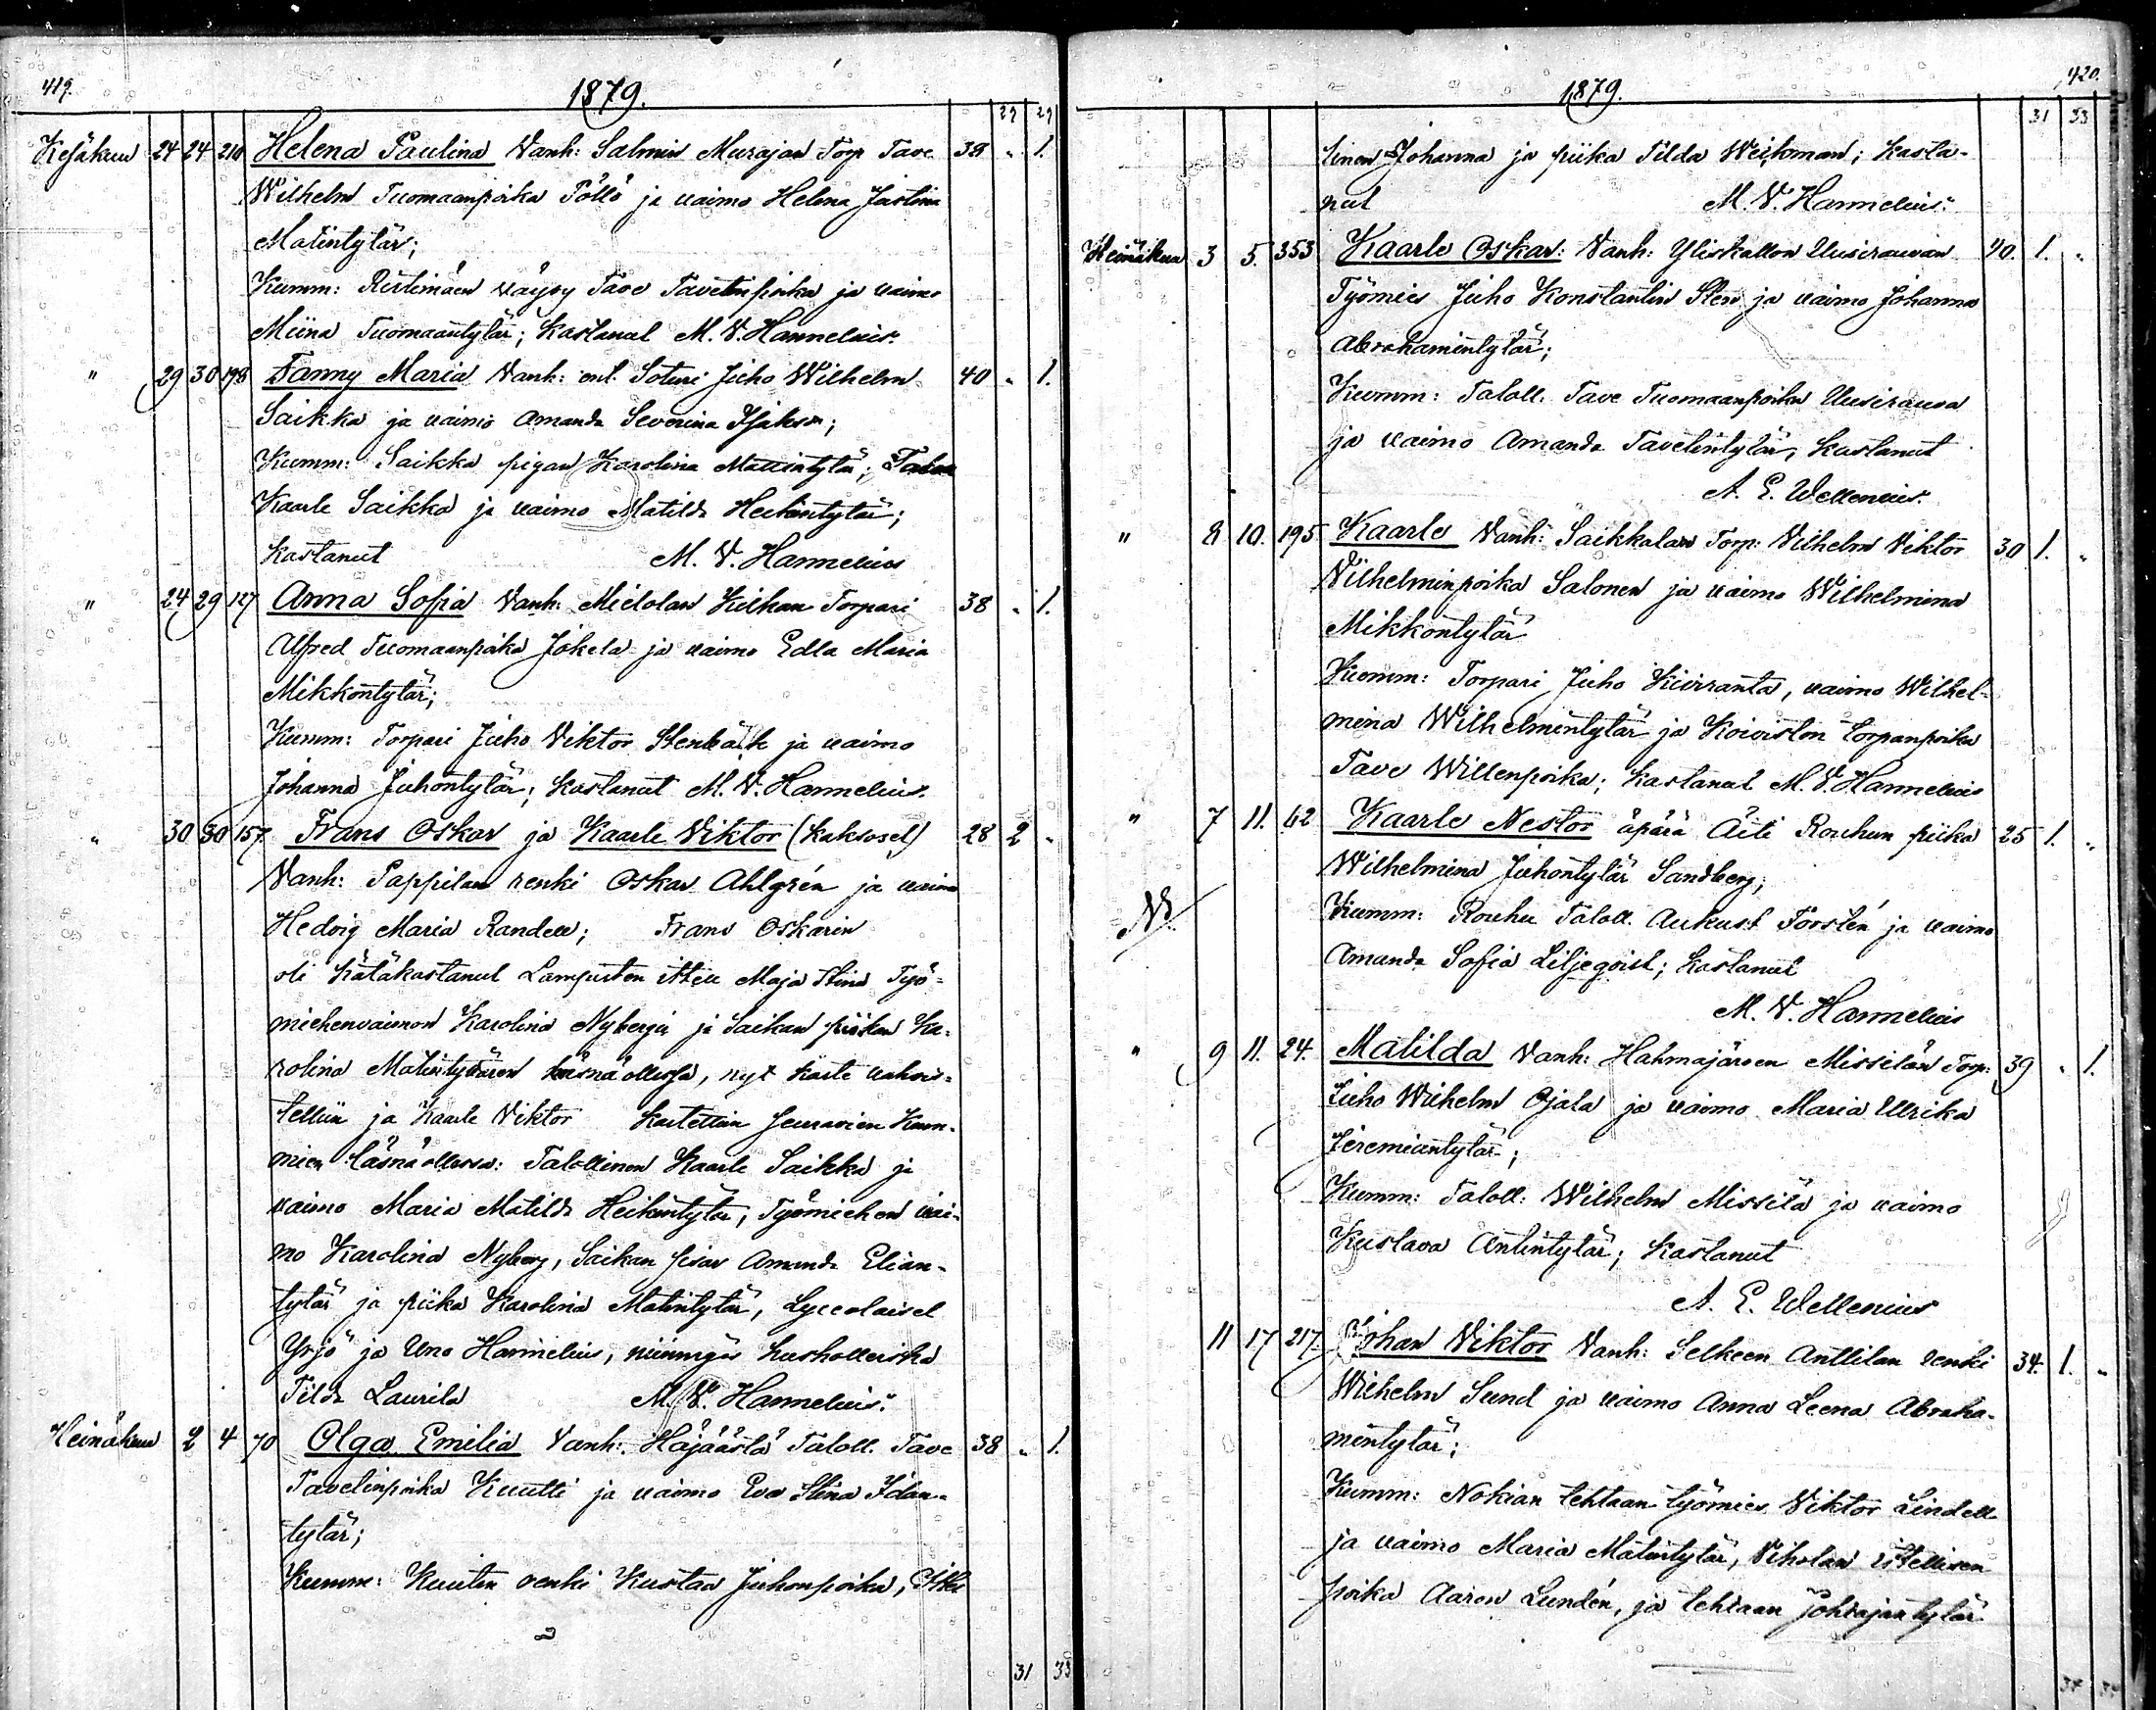 419.
1879.
29 29
Kesäkuu 24 24 210 Helena Paulina Vanh: Salmin Murajan Torp Tave 38 " 1.
Wilhelm Tuomaanpoika Pöllö ja vaimo Helena Justina
Matintytär;
Kumm: Ristimäen Tave Tavetinpoika ja vaimo
Miina Tuomaantytär; Kastanut M. V. Hannelius.
" 29 30 198 Fanny Maria Vanh: ent. Soturi Juho Wilhelm 40 " 1.
Saikka ja vaimo Amanda Severina
Kumm: Saikka pigan Karolina Matintytär;
Kaarle Saikka ja vaimo Matilda Heikintytär;
Kastanut M. V. Hannelius
" 24 29 127 Anna Sofia Vanh: Torpari 38 " 1.
Alfred Tuomaanpoika Jokela ja vaimo Edla Maria
Mikkontytär;
Kumm: Torpari Juho Viktor Stenbäck ja vaimo
Johanna Juhontytär; Kastanut M. V. Hannelius.
" 30 30 157. Frans Oskar ja Kaarle Viktor (Kaksoset) 28 2 "
Vanh: Pappilan renki Oskar Ahlgrén ja vaimo
Hedvig Maria Randell; Frans Oskarin
oli hätäkastanut Lampisten itsell. Maja Stina Työ-
miehenvaimon Karolina Nybergin ja Saikan piikan Ka-
rolina Matintytären läsnä ollessa, nyt kaste vahvis-
tettiin ja Kaarle Viktor kastettiin seuravien Kum-
mien läsnä ollessa: Talollinen Kaarle Saikka ja
vaimo Maria Matilda Heikintytär, Työmiehen vai-
mo Karolina Nyberg, Saikan sisar Amanda Elian-
tytär ja piika Karolina Matintytär, Lyceolaiset
Yrjö ja Uno Hannelius, niinmyös hushollerska
Tilda Laurila M. V. Hannelius.
Heinäkuu 2 4 70 Olga Emilia Vanh: Häjäästä Taloll. Tave 38 " 1.
Tavetinpoika Kuutti ja vaimo Eva Stina Idan-
tytär;
Kumm: Kuutin renki Kustaa Juhonpoika,
31 33
420.
1879.
31 33
linen Johanna ja piika Tilda Weikman; Kasta-
nut M. V. Hannelius.
Heinäkuu 3 5. 353 Kaarle Oskar: Vanh: Yliskallon Uusirauvan 40. 1. "
Työmies Juho Konstantin Sten ja vaimo Johanna
Abrahamintytär;
Kumm: Taloll. Tave Tuomaanpoika Uusirauva
ja vaimo Amanda Tavetintytär, Kastanut
A. E. Wellenius.
" 8 10. 195 Kaarle Vanh: Saikkalan Torp: Vilhelm Viktor 30 1. "
Vilhelminpoika Salonen ja vaimo Wilhelmina
Mikkontytär
Kumm: Torpari Juho Kiviranta, vaimo Wilhel-
mina Wilhelmintytär ja Koiviston torpanpoika
Tave Willenpoika; Kastanut M. V. Hannelius
" 7 11. 62 Kaarle Nestor äpärä Äiti Rouhun piika 25 1. "
Wilhelmina Juhontytär Sandberg;
Kumm: Rouhu Taloll. Aukust Forstén ja vaimo
Amanda Sofia Liljeqvist; Kastanut
M. V. Hannelius
" 9 11. 24. Matilda Vanh: Hahmajärven Missilän Torp: 39 " 1.
Juho Wilhelm Ojala ja vaimo Maria Ulrika
Jeremiantytär;
Kumm: Taloll: Wilhelm Missilä ja vaimo
Kustava Antintytär; Kastanut
A. E. Wellenius
11 17 217. Johan Viktor Vanh: Selkeen Anttilan renki 34. 1. "
Wilhelm Sund ja vaimo Anna Leena Abraha-
mintytär;
Kumm: Nokian tehtaan työmies Viktor Lindell
ja vaimo Maria Matintytär, Viholan itsellisen
poika Aaron Lundén, ja tehtaan johtajan tytär
34